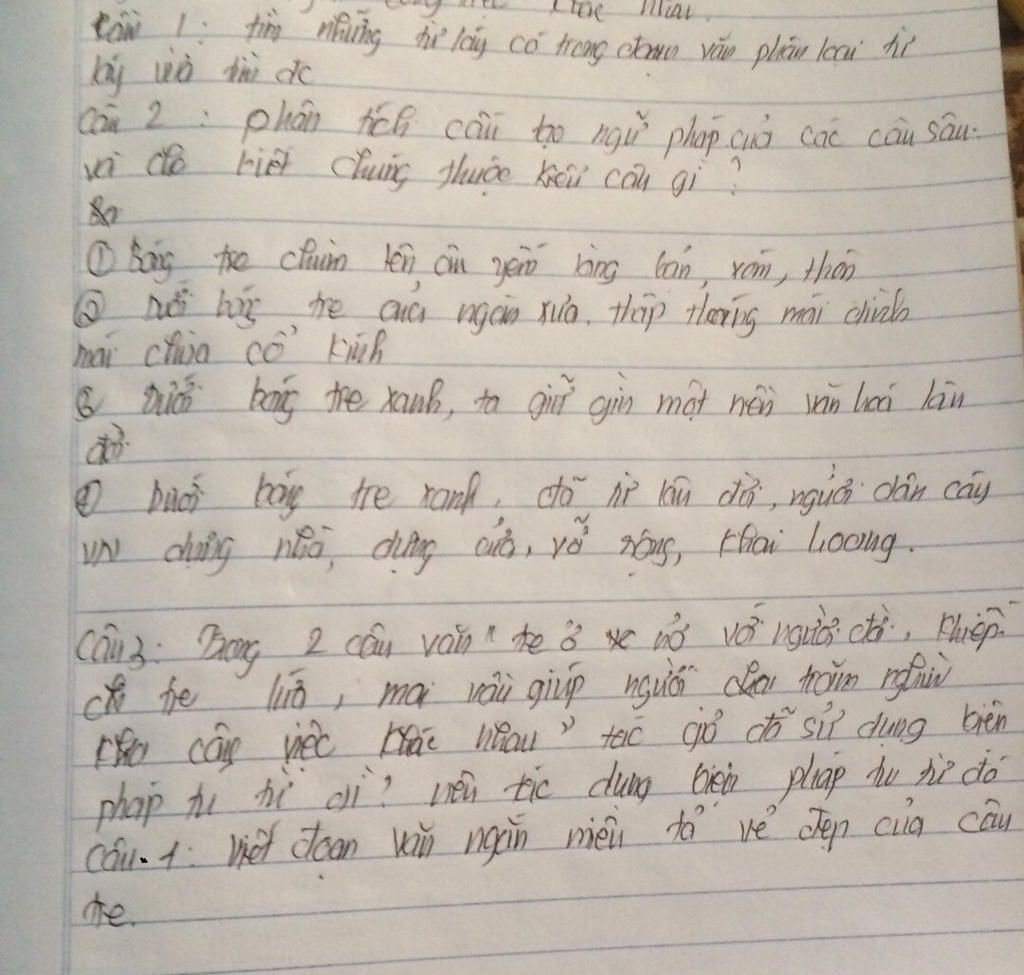 khác nhau.
Câu 1: tìm những từ láy có trong đoạn văn phân loại từ
láy vừa tìm đc
Câu 2: phân tích cấu tạo ngữ pháp của các câu sau.
và cho biết chúng thuộc kiểu câu gì?
① Bóng tre chùm lên âu yếm làng bản, xóm, thôn
② Dưới bóng tre của ngàn xưa. thấp thoáng mái đình
mái chùa cổ kính
③ Dưới bóng tre xanh, ta giữ gìn một nền văn hoá lâu
đời
④ Dưới bóng tre xanh, đã từ lâu đời, người dân cày
VN dựng nhà, dựng cửa, vỡ rộng, khai hoang.
Câu 3: Trong 2 câu văn "tre ở với người đời,
tre nứa, mai vầu giúp người trăm nghìn
công việc khác nhau" tác giả đã sử dụng biên
pháp tu từ gì? nêu tác dụng biện pháp tu từ đó
Câu: Viết đoạn văn ngắn miêu tả vẻ đẹp của câu
tre.